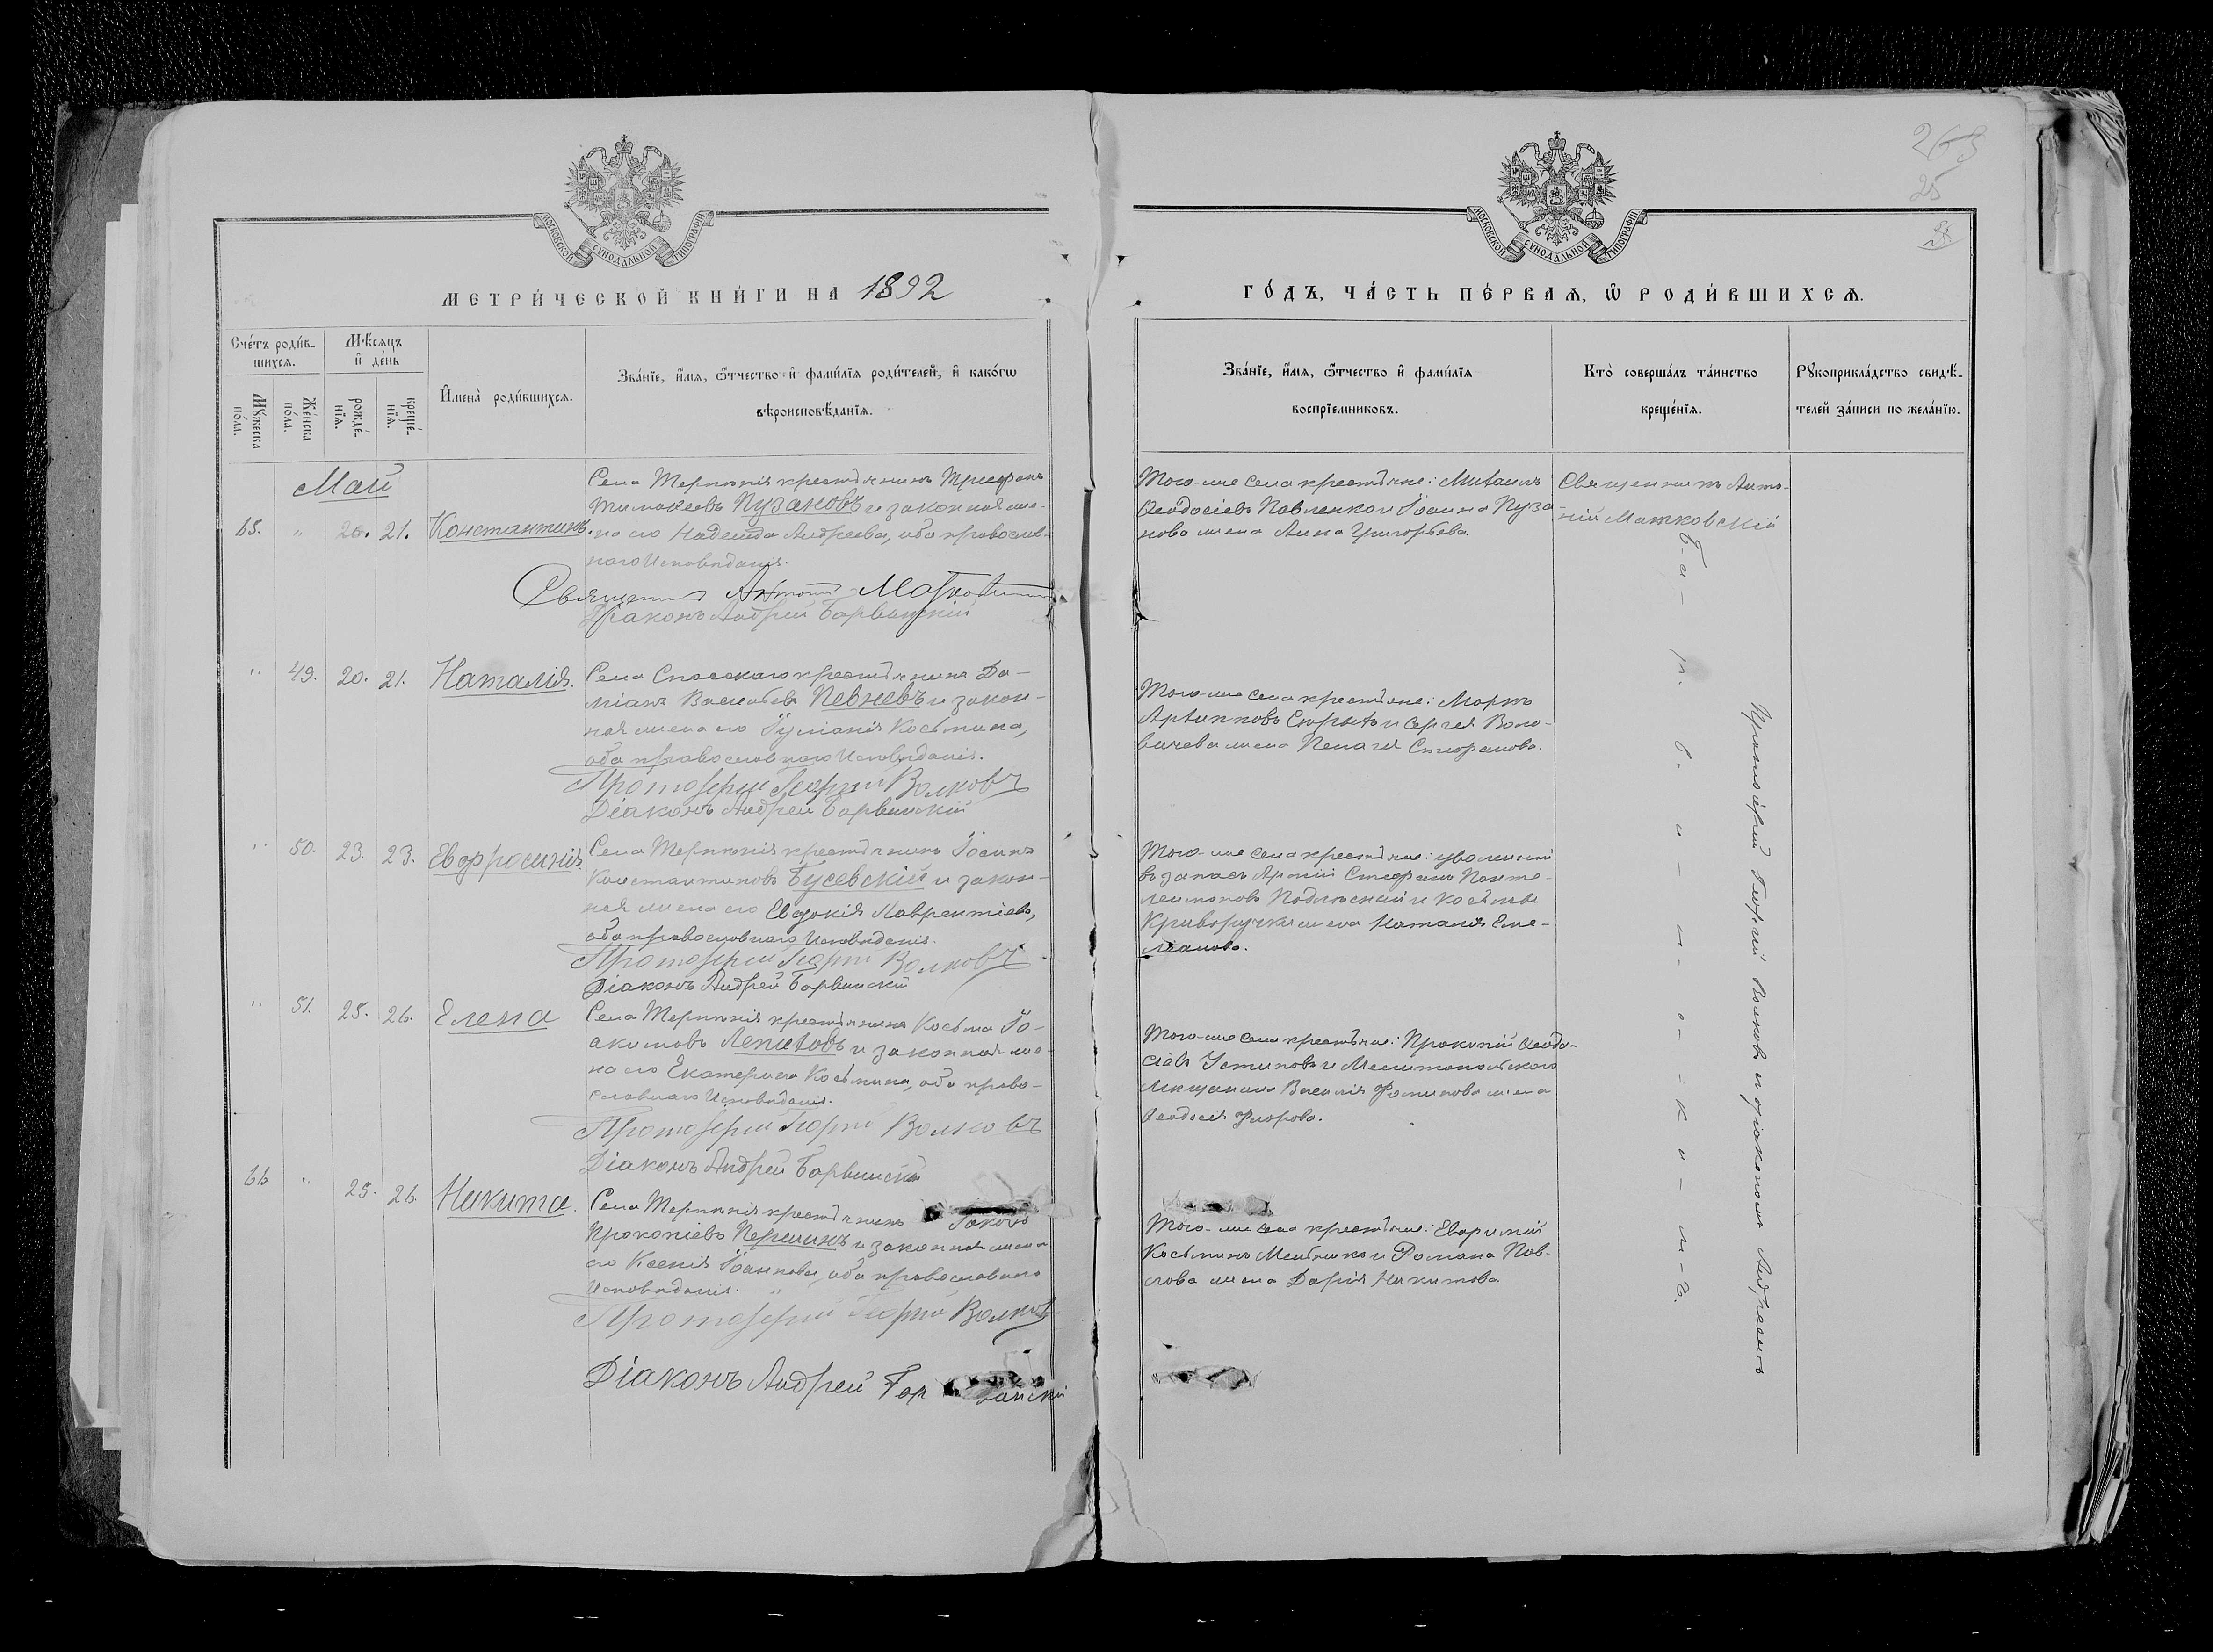 263
25
МОСКОВСКОЙ СѴНОДАЛЬНОЙ ТИПОГРАФІИ
МОСКОВСКОЙ СѴНОДАЛЬНОЙ ТИПОГРАФІИ
МЕТРИ́ЧЕСКОЙ КНИ́ГИ НА 1892
ГО́ДЪ, ЧА́СТЬ ПЕ́РВАЯ, Ѽ РОДИ́ВШИХСЯ.
Сче́тъ роди́в-
шихся.
Мѣ́сяцъ
и҆ де́нь
Мꙋ́жеска по́ла.
Же́нска по́ла.
рожде́-нїя.
креще́-нїя.
И҆мена̀ роди́вшихся.
Зва́нїе, и҆́мя, ѻ҆́тчество и҆ фами́лїя роди́телей, и҆ како́гѡ
вѣроисповѣ́данїя.
Зва́нїе, и҆́мя, ѻ҆́тчество и҆ фами́лїя
воспрїе́мниковъ.
Кто̀ соверша́лъ та́инство
креще́нїя.
Рꙋкоприкла́дство свидѣ́-
телей за́писи по жела́нїю.
Май
65. " 20. 21. Константинъ.
Села Терпѣнія крестьянинъ Трифонъ
Тимофеевъ Пузановъ и законная же-
на его Надежда Андреева, оба православ-
наго Исповѣданія.
Священникъ Антоній Матковскій
Діаконъ Андрей Барвинскій
Того-же села крестьяне: Михаилъ
Ѳеодосіевъ Павленко и Іоанна Пуза-
нова жена Анна Григорьева.
Священникъ Анто-
ній Матковскій
" 49. 20. 21. Наталія.
Села Спасскаго крестьянинъ Да-
міанъ Васильевъ Певневъ и закон-
ная жена его Іуліанія Косьмина,
оба православнаго Исповѣданія.
Протоіерей Георгій Волковъ
Діаконъ Андрей Барвинскій
Того-же села крестьяне:
и Сергія Воло-
вичева жена Пелагія
" 50. 23. 23. Евфросинія.
Села Терпѣнія крестьянинъ Іоаннъ
Константиновъ Бусевскій и закон-
ная жена его Евдокія Лаврентіева,
оба православнаго Исповѣданія.
Протоіерей Георгій Волковъ
Діаконъ Андрей Барвинскій
Того-же села крестьяне: уволенный
въ запасъ Арміи Стефанъ Панте-
леимоновъ и Косьмы
Криворучки жена Наталія Еме-
ліанова.
" 51. 25. 26. Елена
Села Терпѣнія крестьянинъ Косьма Іо-
акимовъ Лепиховъ и законная же-
на его Екатерина Косьмина, оба право-
славнаго Исповѣданія.
Протоіерей Георгій Волковъ
Діаконъ Андрей Барвинскій
Того-же села крестьяне: Прокопій Ѳеодо-
сіевъ Устиновъ и Мелитопольскаго
Мѣщанина Василія жена
Ѳеодосія Флорова.
66. " 25. 26. Никита.
Села Терпѣнія крестьянинъ Іаковъ
Прокопіевъ Першинъ и законная жена
его Ксенія Іоаннова, оба православнаго
Исповѣданія.
Протоіерей Георгій Волковъ
Діаконъ Андрей
Того-же села крестьяне: Евфимій
Косьминъ Мельник и Романа Пав-
лова жена Дарія Никитова
Протоіерей Георгій Волковъ съ діакономъ Андреемъ
Б-а-р-в-и-н-с-к-и-м-ъ.